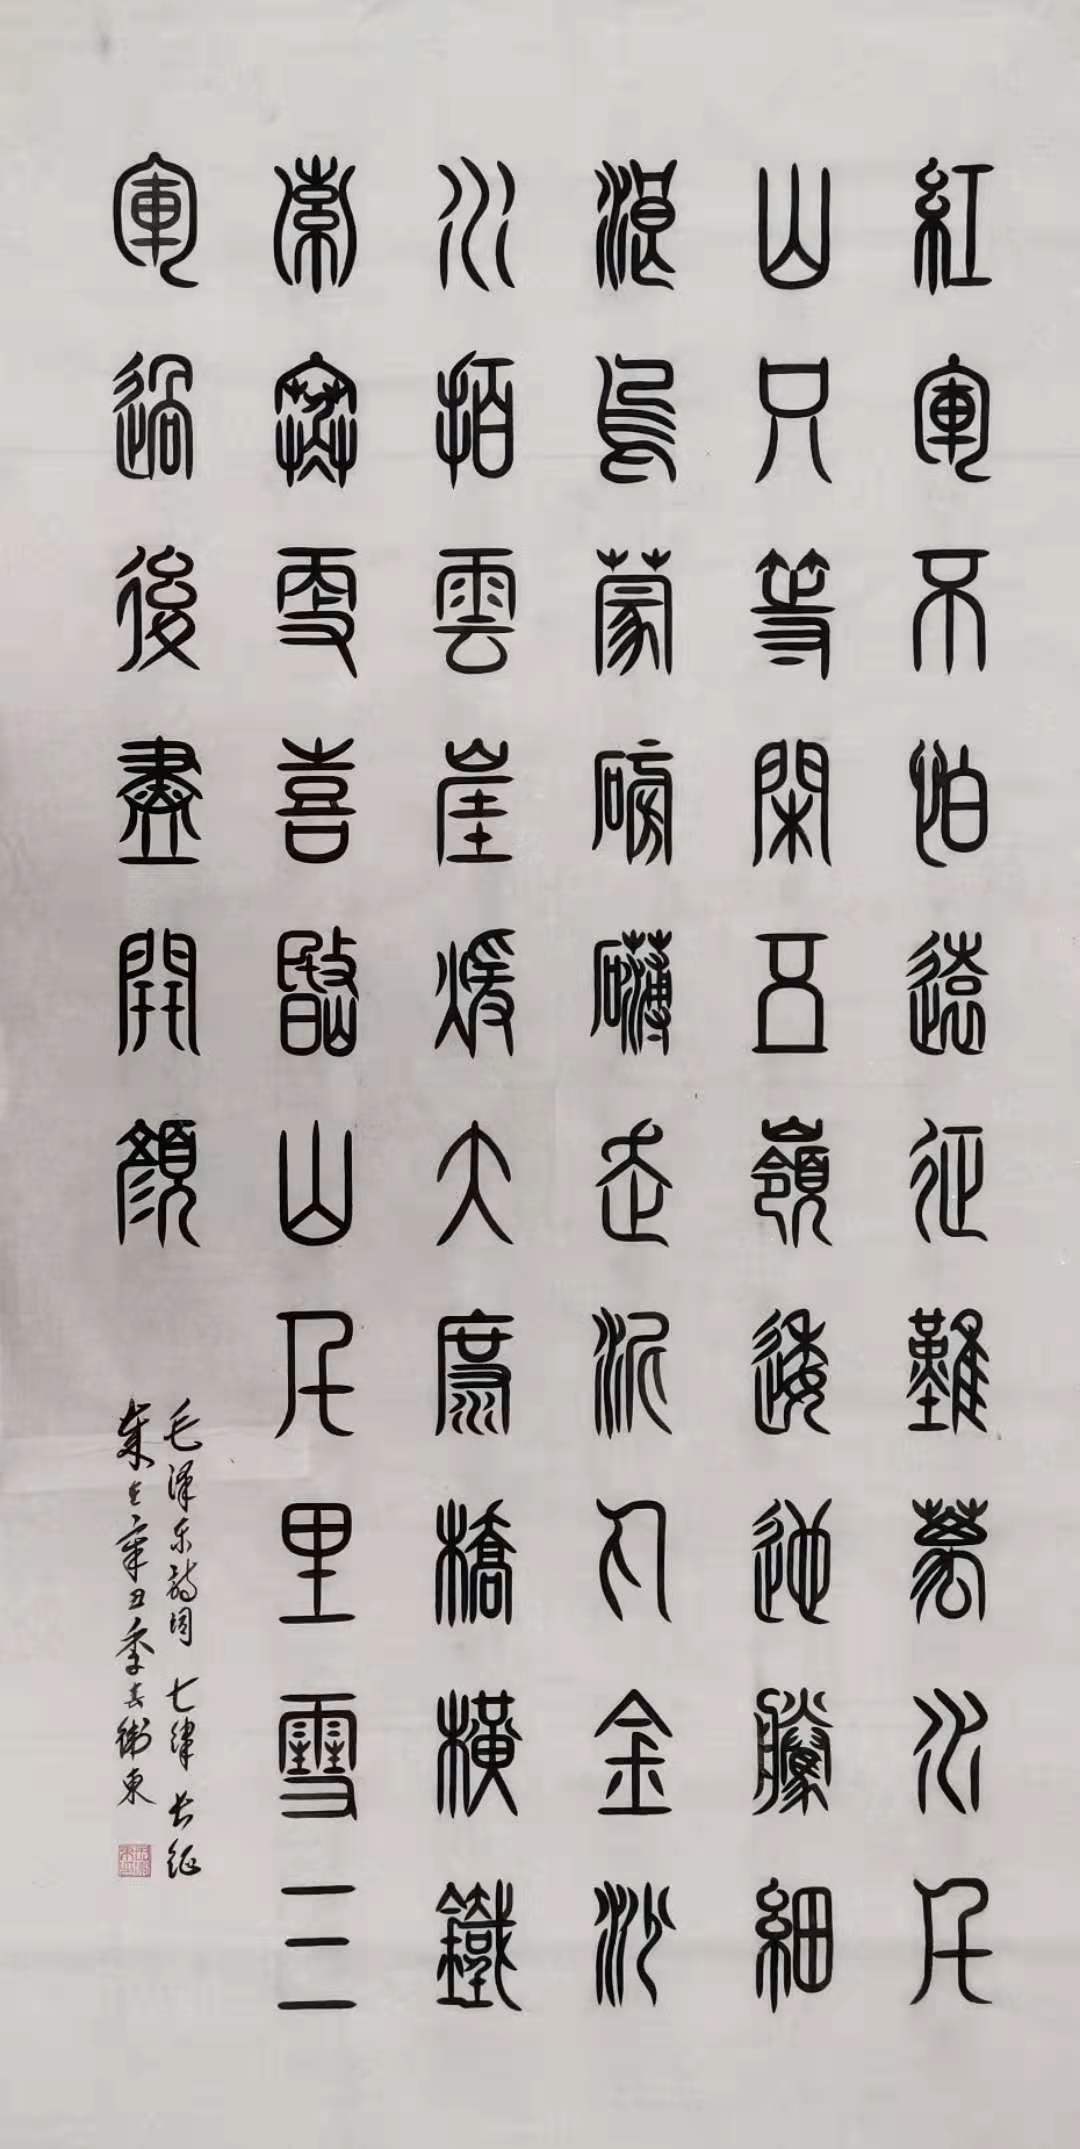 紅軍不怕遠征難萬水千
山只等閑五嶺逶迤騰細
浪烏蒙磅礴走泥丸金沙
水拍雲崖煖大渡橋橫鐵
索寒更喜岷山千里雪三
軍過後盡開顏
毛泽东詩词 七律 长征
岁在辛丑季春衛東